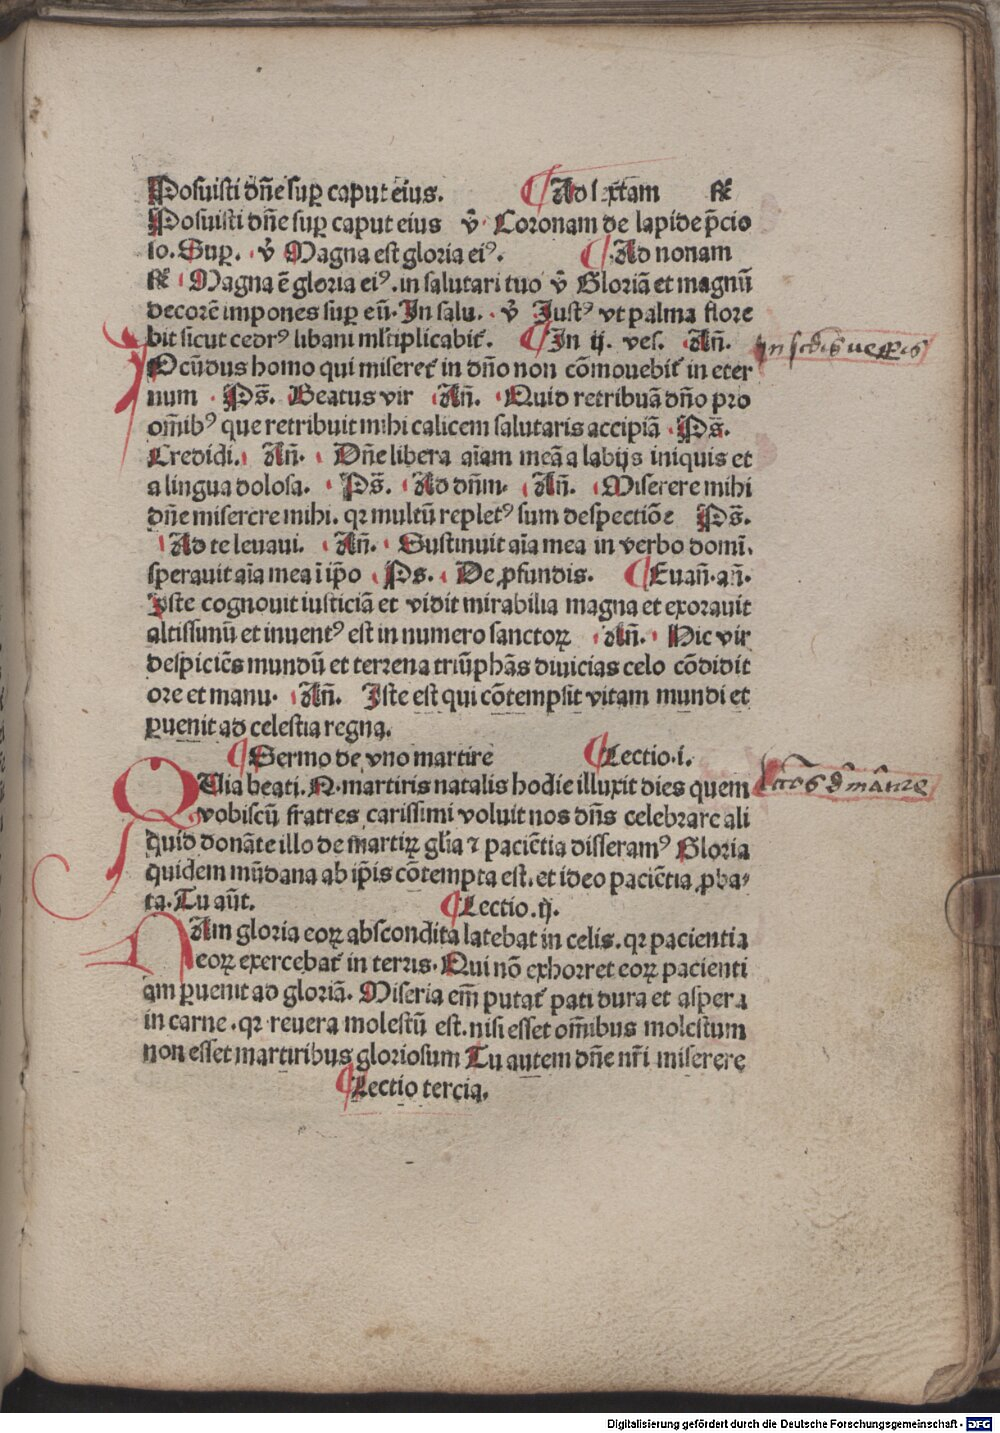 Posuisti dñe sup caput eius. ¶ Ad sextam ℟
Posuisti dñe sup caput eius v̉ Coronam de lapide p̄cio
so. Sup. v̉ Magna est gloria ei⁹. ¶ Ad nonam
℟ Magna ē gloria ei⁹. in salutari tuo v̉ Gloriā et magnū
decorē impones sup eū. In salu. v̉ Just⁹ vt palma flore
bit sicut cedr⁹ libani ml̄tiplicabit᷑. ¶ In ij. ves. Añ.
In scd̄is vesp̄is
JOcūdus homo qui miseret᷑ in dn̄o non cōmouebit᷑ in eter
num Ps̄. Beatus vir Añ. Quid retribuā dn̄o pro
om̄ib⁹ que retribuit mihi calicem salutaris accipiā Ps̄.
Credidi. Añ. Dn̄e libera aīam meā a labijs iniquis et
a lingua dolosa. Ps̄. Ad dn̄m. Añ. Miserere mihi
dn̄e miserere mihi. qꝛ multū replet⁹ sum despectiōe Ps̄.
Ad te leuaui. Añ. Sustinuit aīa mea in verbo domī.
sperauit aīa mea ī ip̄o Ps. De ꝓfundis. ¶ Euañ. añ.
Iste cognouit iusticiā et vidit mirabilia magna et exorauit
altissimū et inuent⁹ est in numero sanctoꝝ Añ. Hic vir
despiciēs mundū et terrena triūphās diuicias celo cōdidit
ore et manu. Añ. Iste est qui cōtempsit vitam mundi et
ꝑuenit ad celestia regna.
¶ Sermo de vno martire ¶ Lectio .i.
QUia beati. N. martiris natalis hodie illuxit dies quem
vobiscū fratres carissimi voluit nos dn̄s celebrare ali
quid donāte illo de martiꝝ gl̄ia ⁊ paciētia disseram⁹ Gloria
quidem mūdana ab ip̄is cōtempta est. et ideo paciētia ꝓba⸗
ta. Tu aūt. ¶ Lectio .ij.
NAm gloria eoꝝ abscondita latebat in celis. qꝛ pacientia
eoꝝ exercebat᷑ in terris. Qui nō exhorret eoꝝ pacienti
am ꝑuenit ad gloriā. Miseria em̄ putat᷑ pati dura et aspera
in carne. qꝛ reuera molestū est. nisi esset om̄ibus molestum
non esset martiribus gloriosum Tu autem dn̄e nr̄i miserere
¶ Lectio tercia.
Digitalisierung gefördert durch die Deutsche Forschungsgemeinschaft - DFG